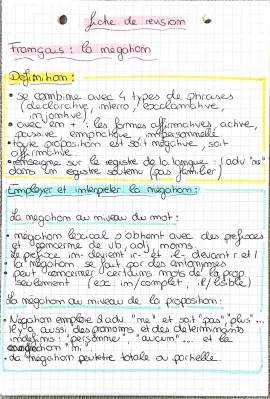 fiche de revision
Français : la negation
Définition :
• se combine avec 4 types de phrases
(declarative, interro, exclamative,
injonctive)
• avec em + : les formes affirmatives, active,
passive emphatique, impersonnelle
• toute proposition est soit negative, soit
affirmative
• renseigne sur le registre de la langue : 1 adv "ne"
dans un registre soutenu (pas familier)
Employer et interpreter la negation :
La negation au niveau du mot :
• negation lexical s'obtient avec des prefixes
et concerne de vb, adj, noms.
le prefixe im- devient ir- et il- devant r et l
• la negation se fait par des antonymes
• peut concerner certains mots de la prop
seulement (ex : im/complet, il/lisible)
La negation au niveau de la proposition :
• Negation emploie 2 adv. "ne" et soit "pas", "plus"...
Il y a aussi des pronoms et des determinants
indefinis : "personne", "aucun"... et la
"ni".
• La negation peut etre totale ou partielle.